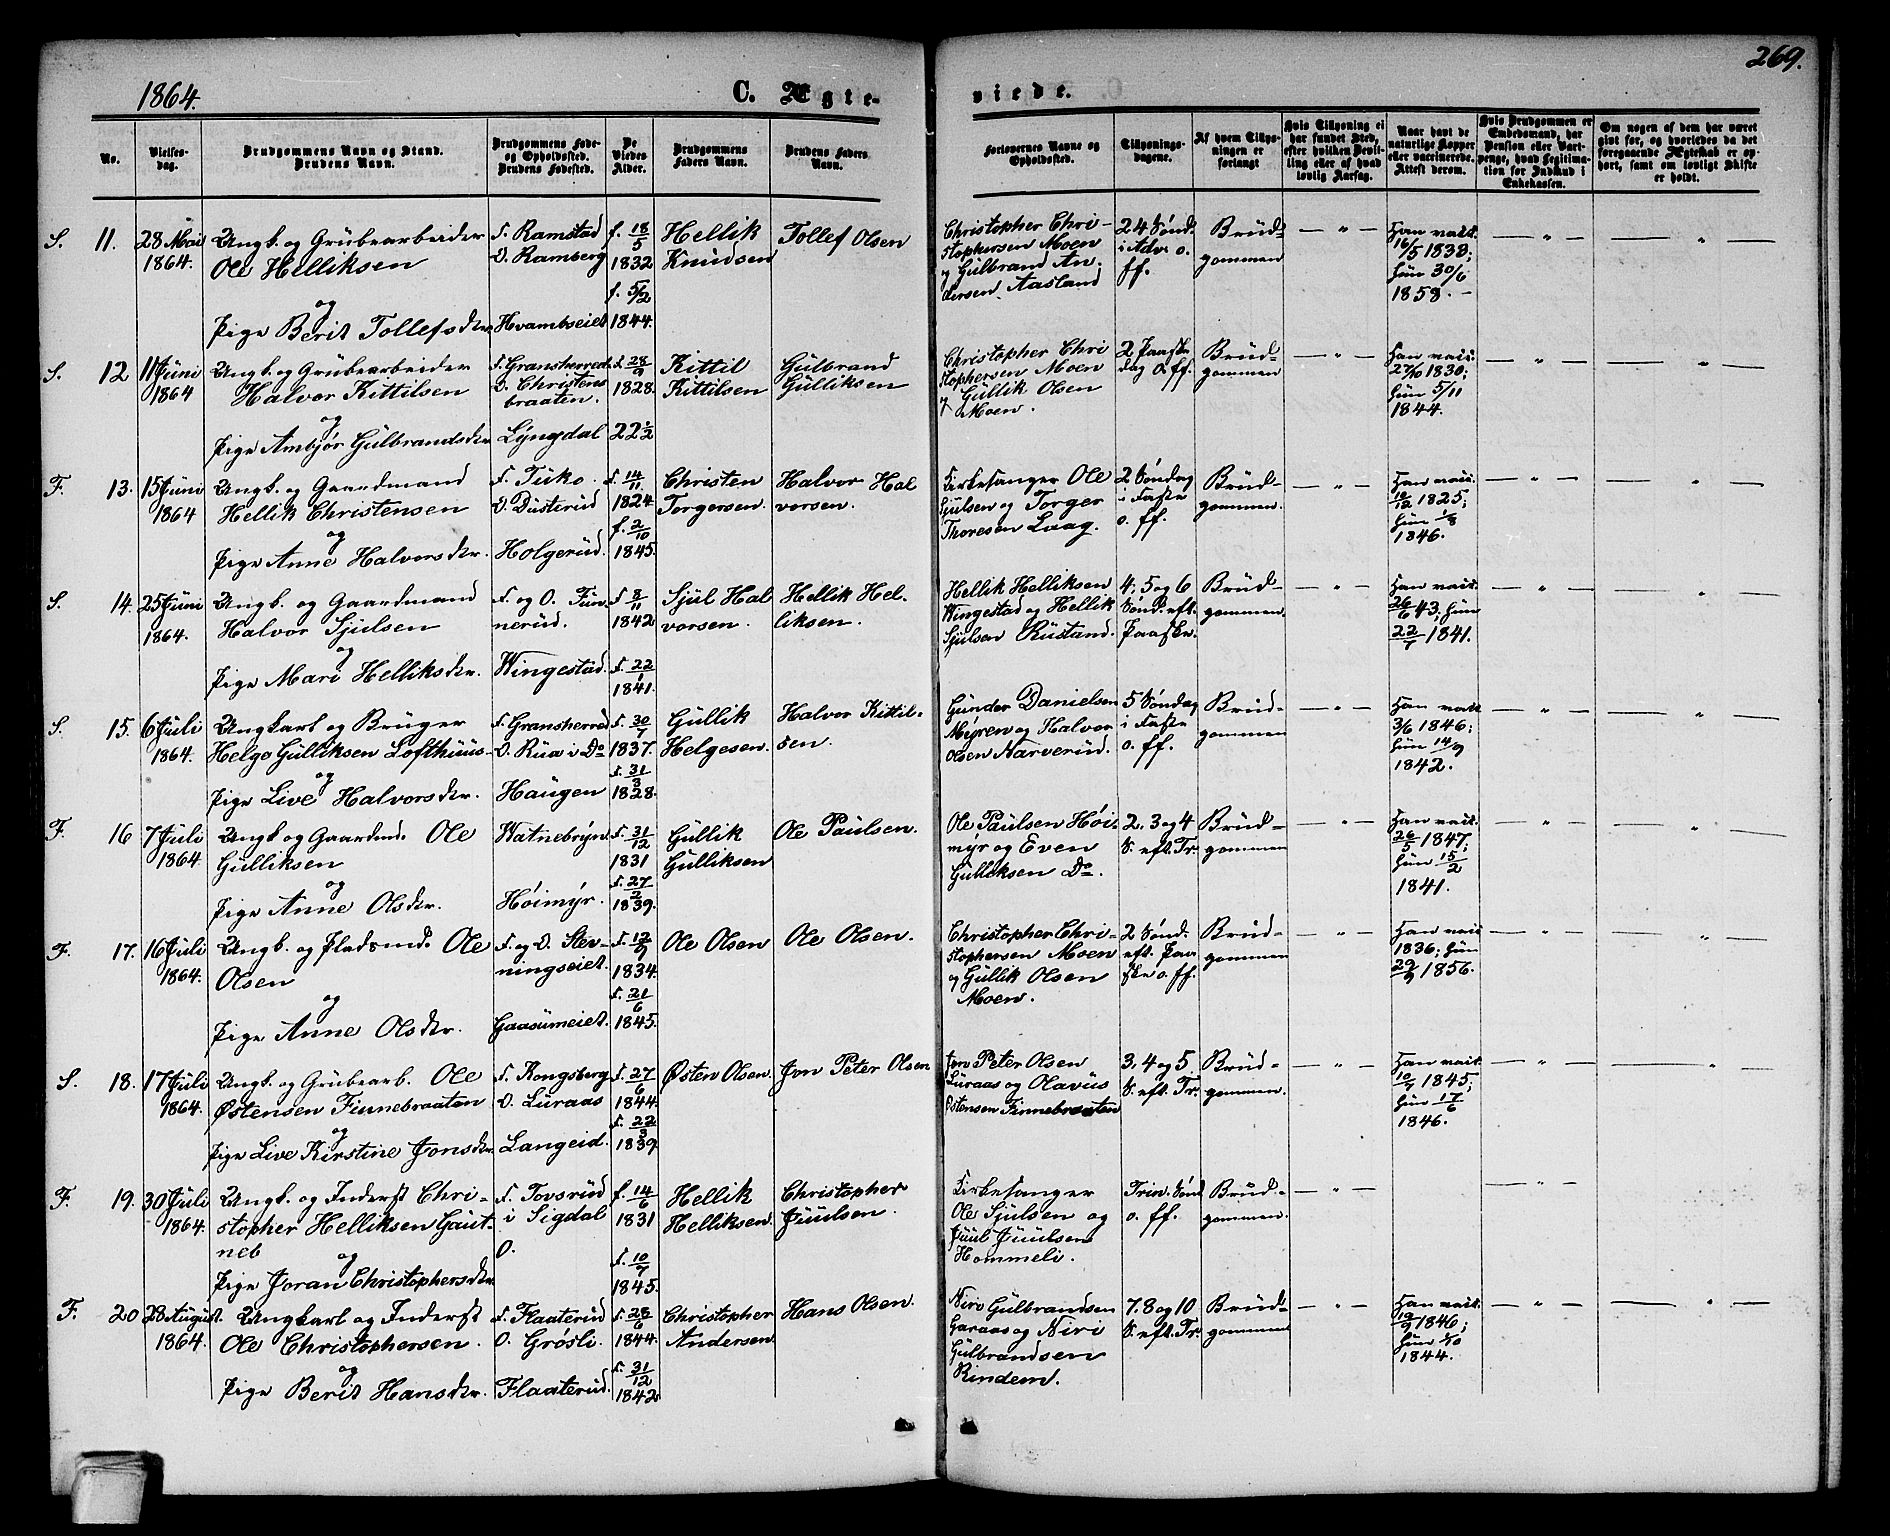 1864.
C. Ægte-
No.
Vielses-
dag.
Brudgommens Navn og Stand.
Brudens Navn.
Brudgommens Føde-
og Opholdssted.
Brudens Fødested.
De
Viedes
Alder.
Brudgommens
Faders Navn.
Brudens Faders
Navn.
S. 11. 28 Mai
1864.
Ungk. og Grubearbeider
Ole Helliksen
og
Pige Berit Tollefsdtr.
F. Ramstad
O. Ramberg
Hvambseiet
f. 18/5
1832
f. 5/2
1844.
Hellik
Knudsen
Tollef Olsen
S. 12 11 Juni
1864
Ungk. og Grubearbeider
Halvor Kittilsen
og
Pige Ambjør Gulbrandsdtr
F. Gransherred
O. Christens
braaten.
Lyngdal
f. 28/9
1828.
22 1/2
Kittil
Kittilsen
Gulbrand
Gulliksen
F. 13. 15 Juni
1864
Ungk. og Gaardmand
Hellik Christensen
og
Pige Anne Halvorsdtr.
O. Dusterud
Holgerud.
f. 14/11
1824
f. 2/10
1845.
Christen
Torgersen.
Halvor Hal
vorsen.
S. 14. 25 Juni
1864.
Ungk. og Gaardmand
Halvor Sjulsen
og
Pige Mari Helliksdtr.
F. og O. Fun-
nerud.
Wingestad.
f. 8/11
1842
f. 22/1
1841.
Sjul Hal
vorsen.
Hellik Hel-
liksen.
S. 15. 6 Juli
1864.
Ungkarl og Bruger
Helge Gulliksen Lofthuus
og
Pige Live Halvorsdtr.
F. Gransherred
O. Rua i Do
Haugen
f. 30/7
1837.
f. 31/3
1828.
Gullik
Helgesen.
Halvor Kittil-
sen.
F. 16 7 Juli
1864.
Ungk og Gaardmd. Ole
Gulliksen
og
Pige Anne Olsdtr.
Watnebryn
Høimyr.
f. 31/12
1831
f. 27/2
1839.
Gullik
Gulliksen
Ole Paulsen.
F. 17. 16 Juli
1864.
Ungk. og Pladsmd. Ole
Olsen
og
Pige Anne Olsdtr.
F. og O. Ster-
ningseiet.
Gaasumeiet.
f. 12/9
1834.
f. 21/6
1845.
Ole Olsen
Ole Olsen.
S. 18. 17 Juli
1864.
Ungk. og Grubearb. Ole
Østensen Finnebraaten
og
Pige Live Kirstine Jonsdtr
F. Kongsberg
O. Luraas
Langeid.
f. 27/6
1844.
f. 22/3
1839
Østen Olsen.
Jon Peter Olsen
F. 19. 30 Juli
1864.
Ungk. og Inderst Chri-
stopher Helliksen Gaut-
neb
og
Pige Joran Christophersdtr
F. Tovsrud
i Sigdal
O.
f. 14/6
1831
f. 10/7
1845.
Hellik
Helliksen.
Christopher
Juulsen.
F. 20 28 August
1864.
Ungkarl og Inderst
Ole Christophersen.
og
Pige Berit Hansdtr.
F. Flaaterud
O. Grøsli.
Flaaterud.
1844.
f. 31/12
1842
Christopher
Andersen
Hans Olsen.
269.
viede.
Forlovernes Navne og
Opholdssted.
Tillysnings-
dagene.
Af hvem Tillys-
ningen er
forlangt
Hvis Tillysning ei
har fundet Sted,
efter hvilken Bevil-
ling eller af hvad
lovlig Aarsag.
Naar havt de
naturlige Kopper
eller vaccinerede.
Attest derom.
Hvis Brudgommen er
Embedsmand, har
Pension eller Vart-
penge, hvad Legitima-
tion for Indskud i
Enkekassen.
Om nogen af dem har været
gift før, og hvorledes da det
foregaaende Ægteskab er op-
hørt, samt om lovligt Skifte
er holdt.
Christopher Chri-
stophersen Moen
og Gulbrand An-
dersen Aasland
24 Sønd.
i Adv. o.
ff.
Brud-
gommen
Han vacc.
16/5 1838;
Hun 30/6
1858.
Christopher Chri
stophersen Moen
og Gullik Olsen
Moen.
2 Paaske
dag o. ff.
Brud-
gommen
Han vacc.
27/10 1830;
Hun 5/11
1844.
Kirkesanger Ole
Sjulsen og Torger
Thoresen Laag.
2 Søndag
i Faste
o. ff.
Brud-
gommen.
Han vacc.
10/12 1825;
Hun 1/8
1846.
Hellik Helliksen
Wingestad og Hellik
Sjulsen Rustand.
4, 5 og 6
Sønd. eft.
Paaske.
Brud-
gommen.
Han vacc.
26/6 43; Hun
22/7 1841.
Gunder Danielsen
Myren og Halvor
Olsen Narverud.
5 Søndag
i Faste
o. ff.
Brud-
gommen
Han vacc.
3/6 1846;
Hun 14/9
1842.
Ole Paulsen Høi-
myr og Even
Gulliksen Do.
2. 3 og 4
S. eft. Tr.
Brud-
gommen
Han vacc.
26/5 1847;
Hun 15/2
1841.
Christopher Chri-
stophersen Moen
og Gullik Olsen
Moen.
2 Sønd.
eft. Paa-
ske o. ff.
Brud-
gommen
Han vacc
1836; Hun
29/9 1856.
Jon Peter Olsen
Luraas og Olavus
Østensen Finnebraaten
3. 4 og 5.
S. eft. Tr.
Brud-
gommen.
Han vacc.
10/7 1845;
Hun 17/6
1846.
Kirkesanger
Ole Sjulsen og
Juul Juulsen
Hommeli.
Trin. Sønd
o. ff.
Brud-
gommen.
Niri Gulbrandsen
Garaas og Niri
Gulbrandsen
Rindem.
7. 8 og 10
S. eft. Tr.
Brud-
gommen
Han vacc.
12/9 1846;
Hun
1844.